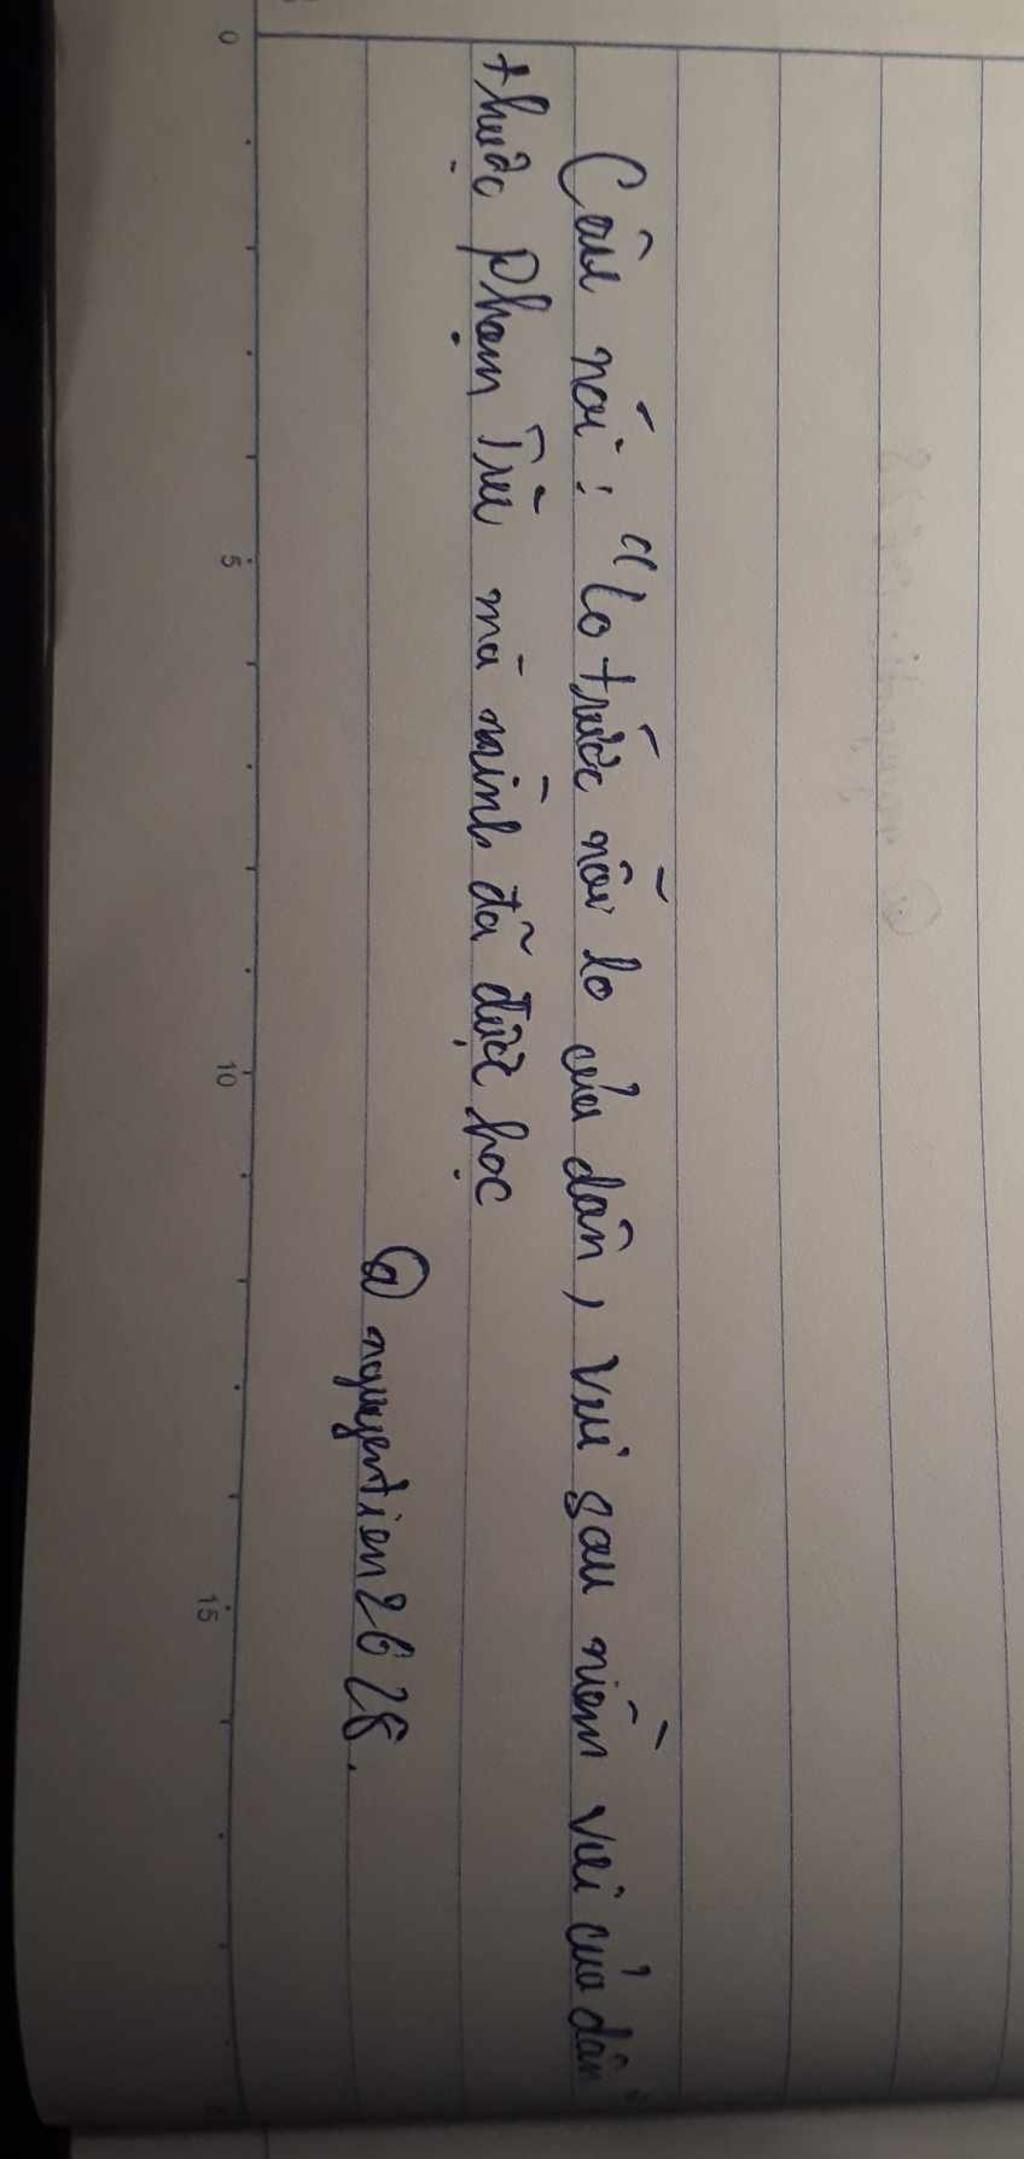 Câu nói: "lo trước nỗi lo của dân, vui sau niềm vui của dân"
thuộc Phạm Trù mà mình đã được học
@nguyentien2628.
0 5 10 15